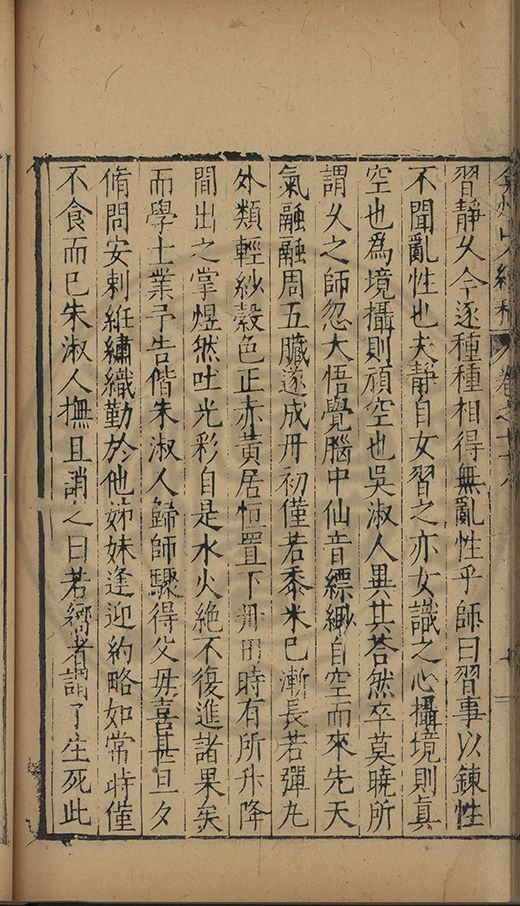 弇州山人續稿 卷之七十八
習靜女今逐種種相得無亂性乎師曰習事以鍊性
不聞亂性也夫靜自女習之亦女識之心攝境則真
空也為境攝則頑空也吳淑人異其荅然卒莫曉所
謂久之師忽大悟覺腦中仙音縹緲自空而來先天
氣融融周五臟遂成丹初僅若黍米已漸長若彈丸
外類輕紗縠色正赤黃居恒置下丹田時有所升降
間出之掌煜然吐光彩自是水火絕不復進諸果矣
而學士業予告偕朱淑人歸師驟得父母喜甚旦夕
脩問安剌絍繡織勤於他姊妹逢迎約略如常時僅
不食而已朱淑人撫且誚之曰若嚮者謂了生死此